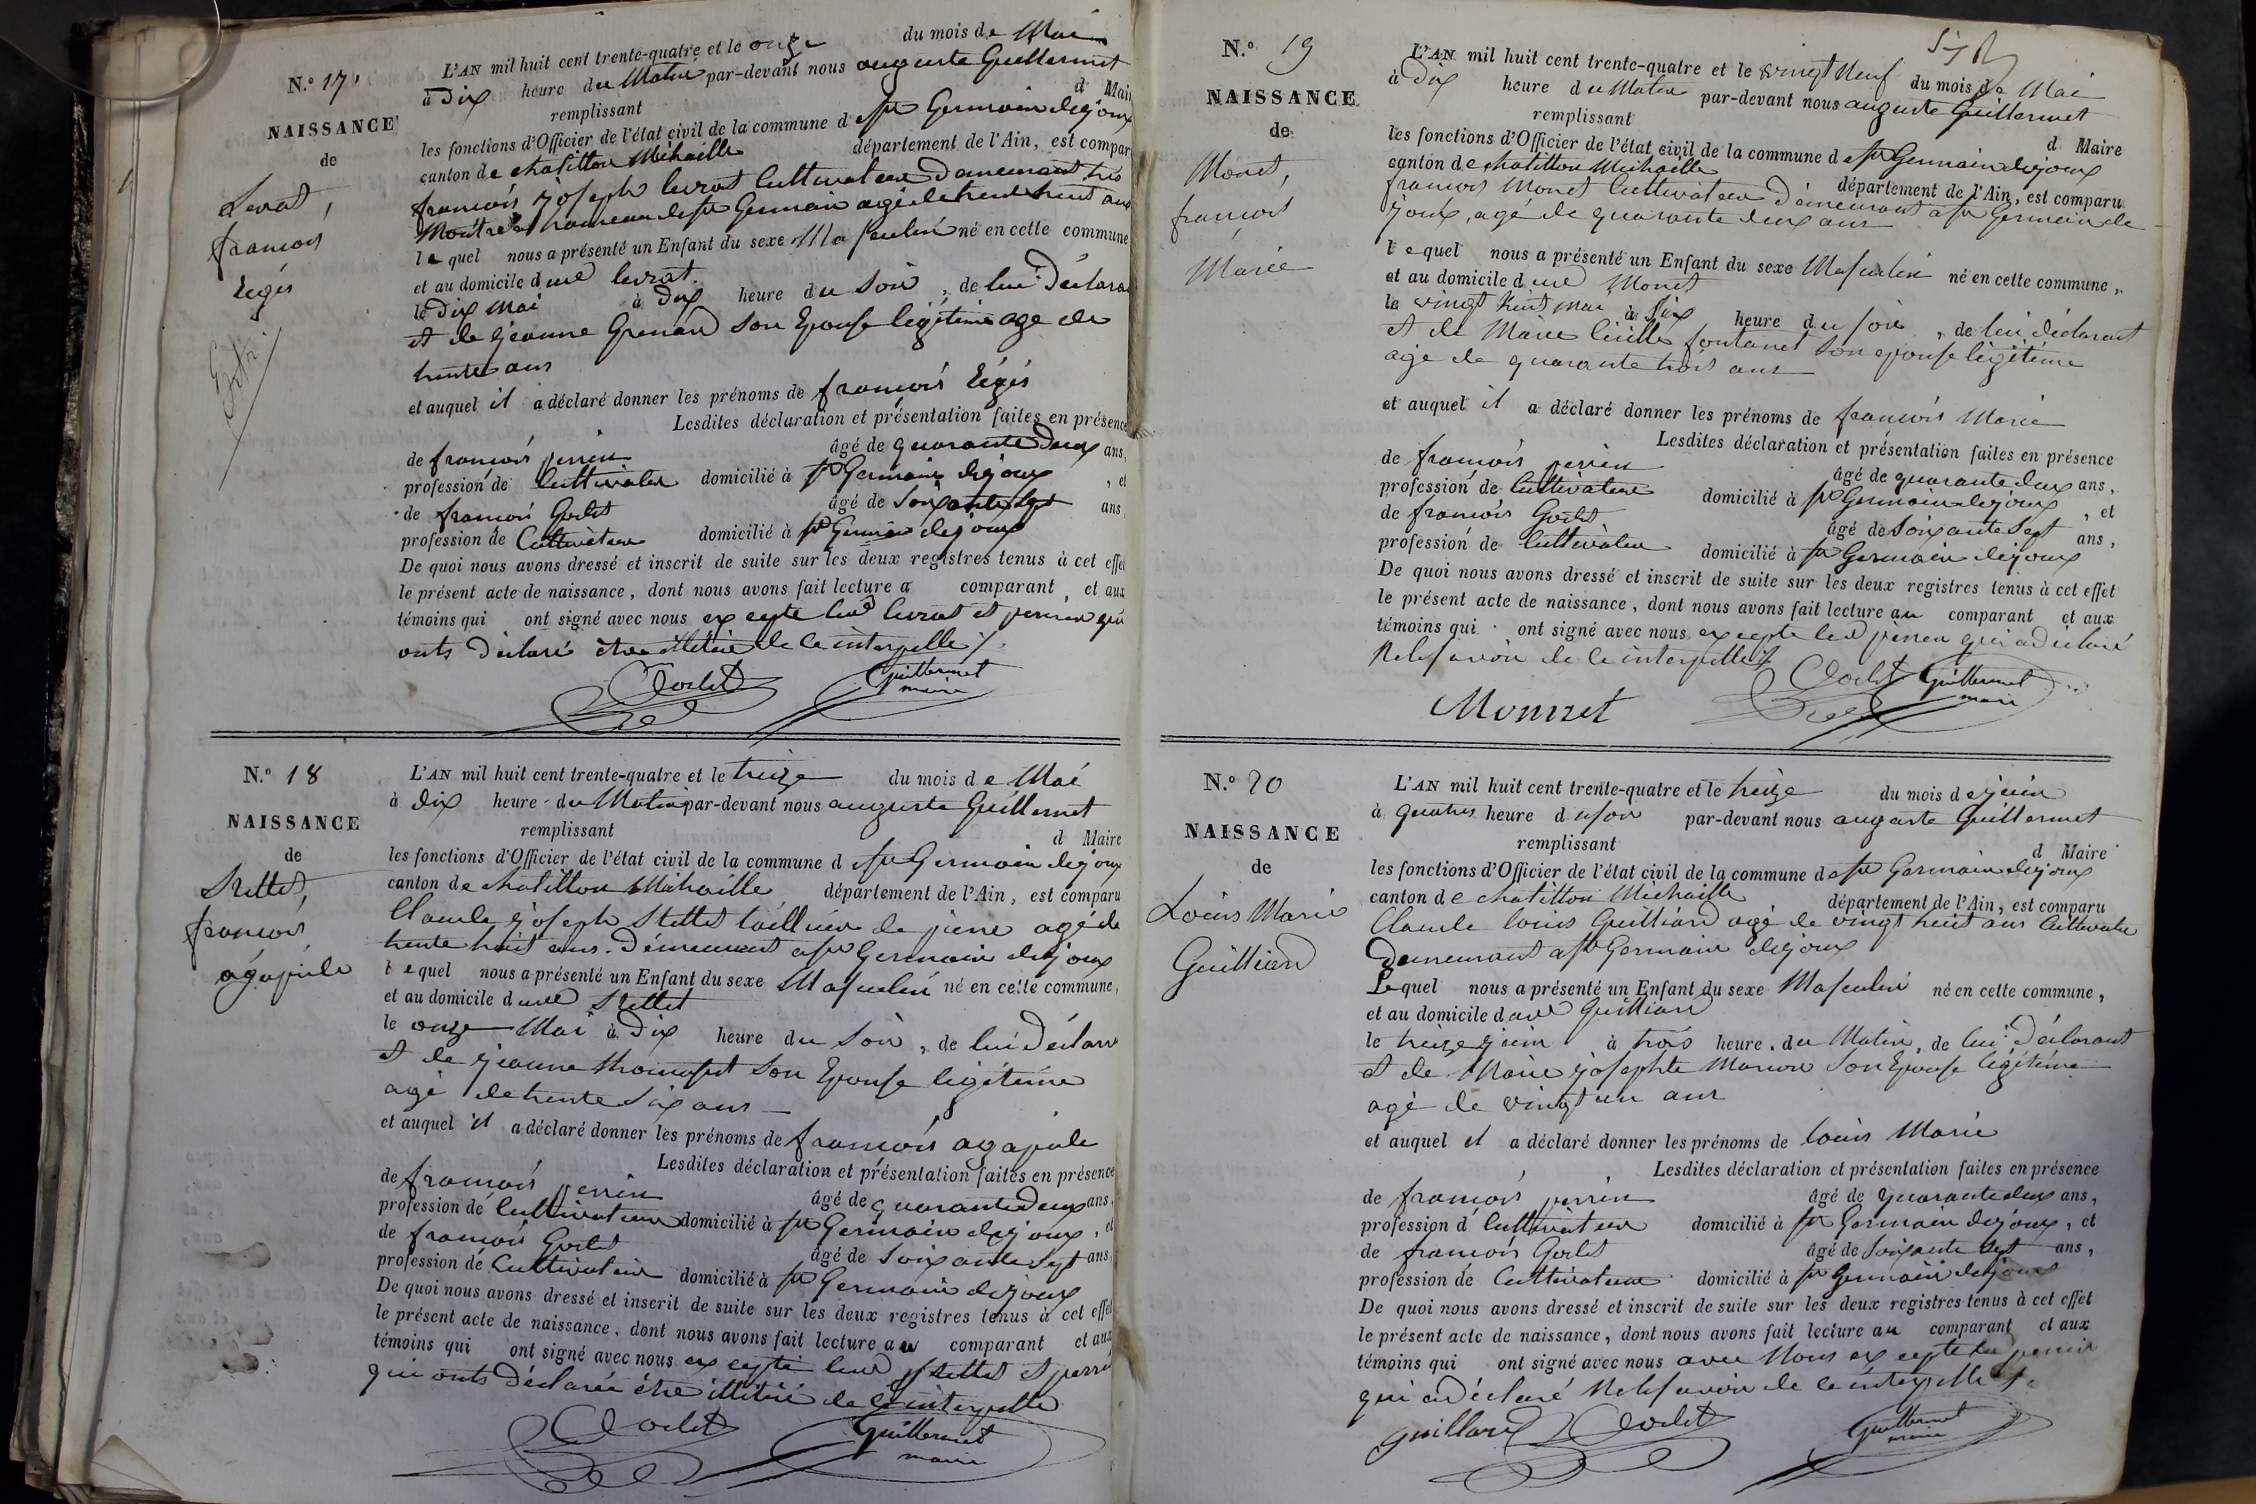 N.° 17.
NAISSANCE
de
Levrat,
francois
Régis
L'AN mil huit cent trente-quatre et le onze du mois de Mai
à Dix heure du Matin par-devant nous auguste Guillermet
remplissant d Maire
les fonctions d'Officier de l'état civil de la commune de st Germain dejoux
canton de chatillon Michaille département de l'Ain, est comparu
francois joseph levrat Cultivateur Demeurant
hameau de st Germain agé de trente huit ans
lequel nous a présenté un Enfant du sexe Masculin né en cette commune
et au domicile dud levrat.
le Dix Mai à Dix heure du Soir, de lui Déclarant
et de jeanne Grenard Son Epouse légitime age de
trente ans
et auquel il a déclaré donner les prénoms de francois Régis
Lesdites déclaration et présentation faites en présence
de francois perrin âgé de quarante Deux ans,
profession de Cultivateur domicilié à st Germain dejoux, et
de francois Godet âgé de Soixante Sept ans
profession de Cultivateur domicilié à st Germain dejoux
De quoi nous avons dressé et inscrit de suite sur les deux registres tenus à cet effet
le présent acte de naissance, dont nous avons fait lecture a comparant, et aux
témoins qui ont signé avec nous excepte led levrat et perrin qui
onts Déclaré être illitéré de ce interpellé /.
Godet Guillermet
maire
N.° 18
NAISSANCE
de
francois
agapile
L'AN mil huit cent trente-quatre et le treize du mois de Mai
à dix heure du Matin par-devant nous auguste Guillermet
remplissant d Maire
les fonctions d'Officier de l'état civil de la commune de st Germain dejoux
canton de chatillon Michaille département de l'Ain, est comparu
Claude joseph tailleur de pierre agé de
trente huit ans. Demeurant a st Germain dejoux
lequel nous a présenté un Enfant du sexe Masculin né en cette commune,
et au domicile dud
le onze Mai à Dix heure du Soir, de lui Déclarant
et de jeanne Son Epouse légitime
agé de trente Six ans
et auquel il a déclaré donner les prénoms de francois agapile
Lesdites déclaration et présentation faites en présence
de francois perrin âgé de quarante Deux ans,
profession de Cultivateur domicilié à st Germain dejoux, et
de francois Godet âgé de Soixante Sept ans,
profession de Cultivateur domicilié à st Germain dejoux
De quoi nous avons dressé et inscrit de suite sur les deux registres tenus à cet effet
le présent acte de naissance, dont nous avons fait lecture au comparant et aux
témoins qui ont signé avec nous excepté led et perrin
qui onts Déclaré être illitéré de ce interpellé
Godet Guillermet
maire
N.° 19
NAISSANCE
de
Monet,
francois
Marie
L'AN mil huit cent trente-quatre et le vingt Neuf du mois de Mai
à Dix heure du Matin par-devant nous auguste Guillermet
remplissant d Maire
les fonctions d'Officier de l'état civil de la commune de st Germain dejoux
canton de chatillon Michaille département de l'Ain, est comparu
francois Monet Cultivateur Demeurant a st Germain de
joux, agé de quarante deux ans
lequel nous a présenté un Enfant du sexe Masculin né en cette commune,
et au domicile dud Monet
le vingt huit mai à Six heure du soir, de lui déclarant
et de Marie fontanet Son epouse légitime
agé de quarante trois ans
et auquel il a déclaré donner les prénoms de francois Marie
Lesdites déclaration et présentation faites en présence
de francois perrin âgé de quarante deux ans,
profession de Cultivateur domicilié à st Germain dejoux, et
de francois Godet âgé de Soixante Sept ans,
profession de Cultivateur domicilié à st Germain dejoux
De quoi nous avons dressé et inscrit de suite sur les deux registres tenus à cet effet
le présent acte de naissance, dont nous avons fait lecture au comparant et aux
témoins qui ont signé avec nous excepte led perrin qui a déclaré
Ne le savoir de ce interpellé
Godet Guillermet
maire
Monnet
N.° 20
NAISSANCE
de
Louis Marie
Guilliand
L'AN mil huit cent trente-quatre et le treize du mois de juin
à quatres heure du soir par-devant nous auguste Guillermet
remplissant d Maire
les fonctions d'Officier de l'état civil de la commune de st Germain dejoux
canton de chatillon Michaille département de l'Ain, est comparu
Claude louis Guilliand agé de vingt huit ans Cultivateur
Demeurant a st Germain dejoux
Lequel nous a présenté un Enfant du sexe Masculin né en cette commune,
et au domicile dud Guilliand
le treize juin à trois heure du Matin, de lui Déclarant
et de Marie josephte Son Epouse légitime
agé de vingt un ans
et auquel il a déclaré donner les prénoms de louis Marie
Lesdites déclaration et présentation faites en présence
de francois perrin âgé de quarante deux ans,
profession d Cultivateur domicilié à st Germain dejoux, et
de francois Godet âgé de Soixante Sept ans,
profession de Cultivateur domicilié à st Germain dejoux
De quoi nous avons dressé et inscrit de suite sur les deux registres tenus à cet effet
le présent acte de naissance, dont nous avons fait lecture au comparant et aux
témoins qui ont signé avec nous avec Nous excepté led perrin
qui a déclaré Ne le savoir de ce interpellé /.
Guilland Godet Guillermet
maire